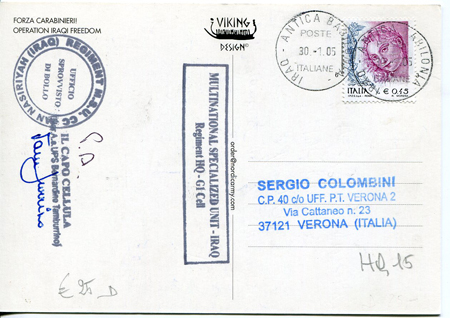 FORZA CARABINIERI!
OPERATION IRAQI FREEDOM
VIKING
DESIGN®
ANTICA BABILONIA
POSTE
30-1.05
ITALIANE
IRAQ
€ 0,45
REGIMENT M.S.U. CC
AN NASIRIYAH (IRAQ)
UFFICIO
SPROVVISTO
DI BOLLO
IL CAPO CELLULA
MULTINATIONAL SPECIALIZED UNIT - IRAQ
Regiment HQ - G1 Cell
order@nordicarmy.com
SERGIO COLOMBINI
C.P. 40 c/o UFF. P.T. VERONA 2
Via Cattaneo n. 23
37121 VERONA (ITALIA)
HQ 15
€ 25 D